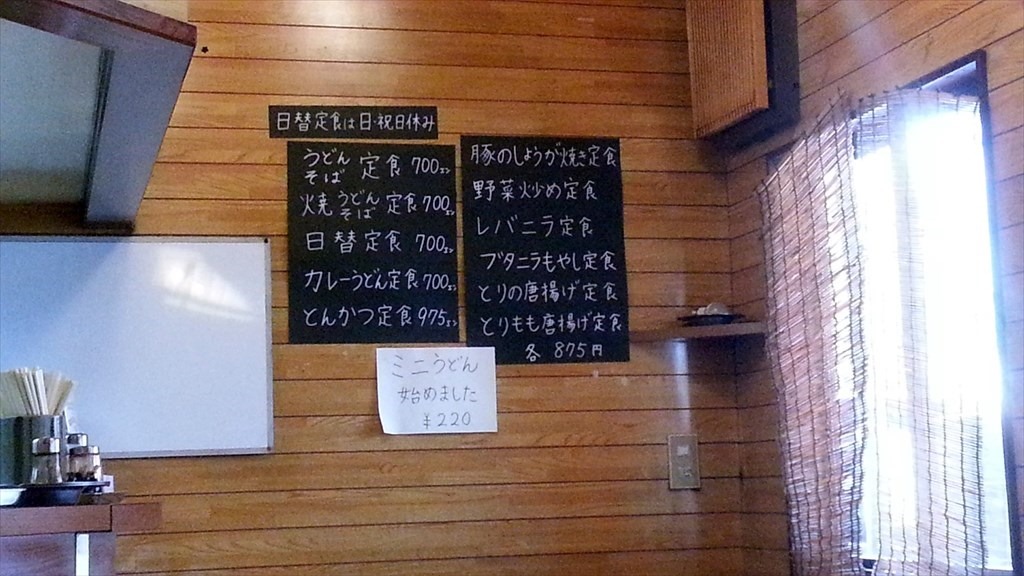 日替定食は日・祝日休み
うどん
そば 定食 700円
焼 うどん
そば 定食 700円
日替定食 700円
カレーうどん定食 700円
とんかつ定食 975円
豚のしょうが焼き定食
野菜炒め定食
レバニラ定食
ブタニラもやし定食
とりの唐揚げ定食
とりもも唐揚げ定食
各 875円
ミニうどん
始めました
¥220